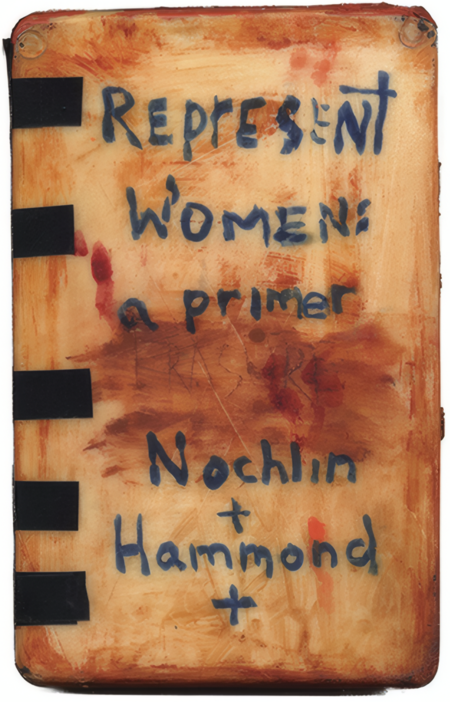 REPrESENT
WOMEN:
a primer
ERASURE
Nochlin
+
Hammond
+